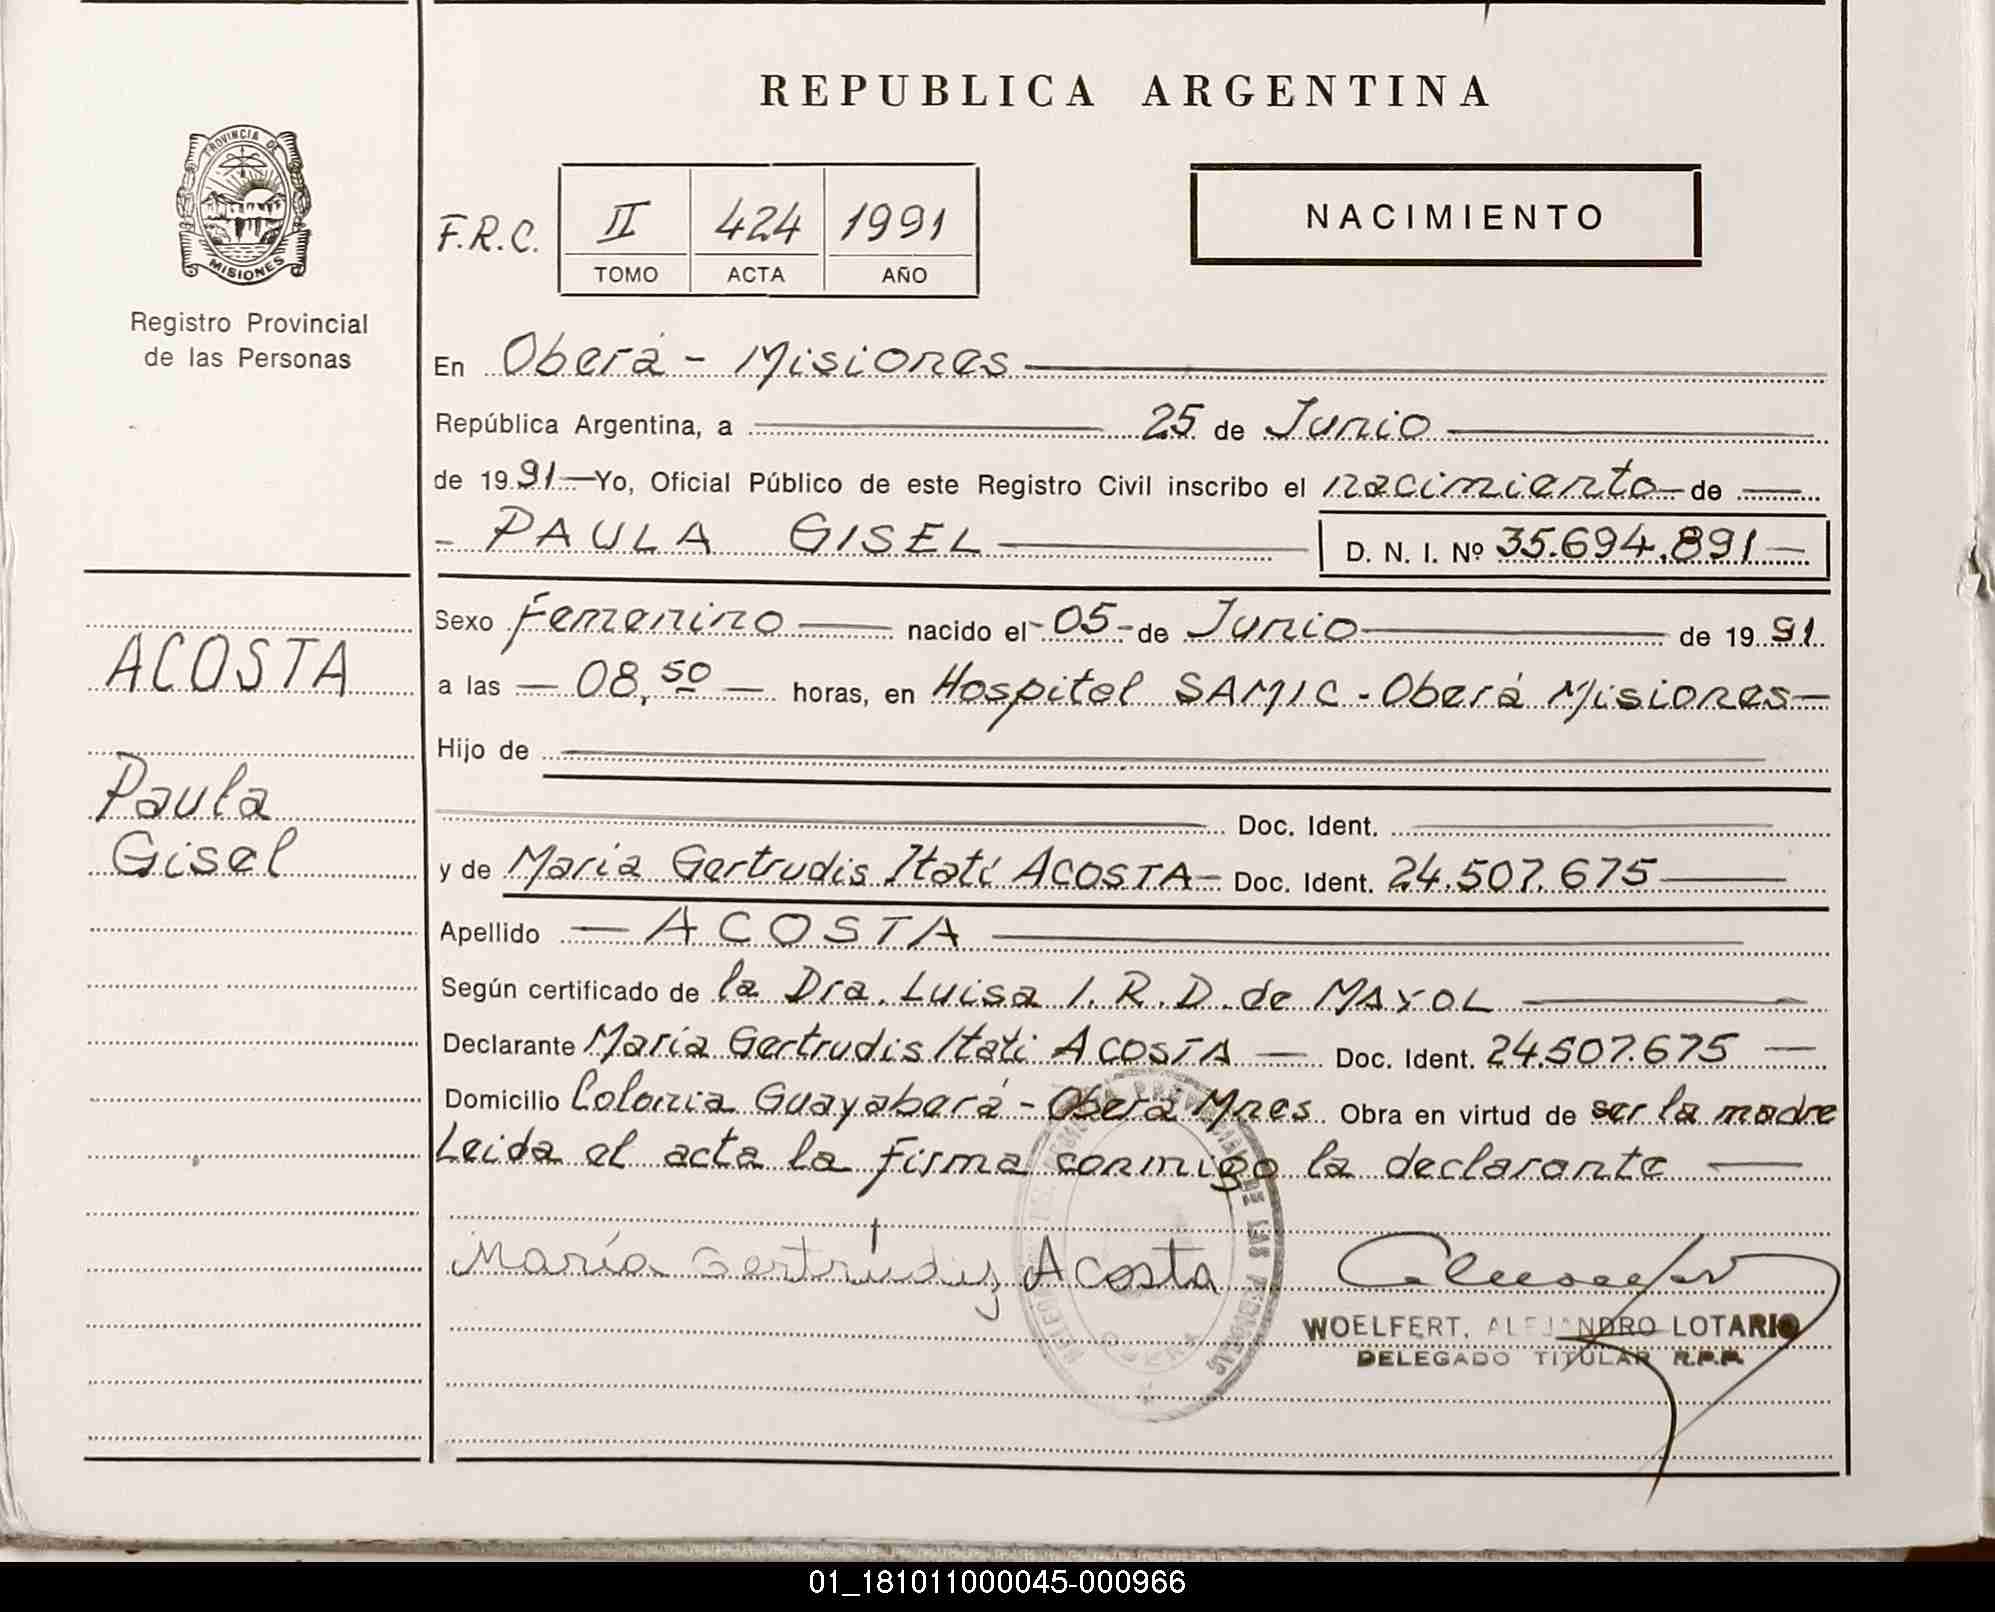 REPUBLICA ARGENTINA
PROVINCIA DE
MISIONES
Registro Provincial
de las Personas
F.R.C.
II 424 1991
TOMO ACTA AÑO
NACIMIENTO
En Oberá - Misiones
República Argentina, a 25 de Junio
de 1991 Yo, Oficial Público de este Registro Civil inscribo el nacimiento de
PAULA GISEL D. N. I. Nº 35.694.891
ACOSTA
Paula
Gisel
Sexo Femenino nacido el 05 de Junio de 1991
a las 08,50 horas, en Hospital SAMIC - Oberá Misiones
Hijo de
Doc. Ident.
y de Maria Gertrudis Itatí ACOSTA Doc. Ident. 24.507.675
Apellido ACOSTA
Según certificado de la Dra. Luisa I. R. D. de MAYOL
Declarante Maria Gertrudis Itati ACOSTA Doc. Ident. 24.507.675
Domicilio Colonia Guayaberá - Oberá Mnes Obra en virtud de ser la madre
Leida el acta la firma conmigo la declarante
María Gertrudiz Acosta
WOELFERT, ALEJANDRO LOTARIO
DELEGADO TITULAR R.P.P.
01_181011000045-000966